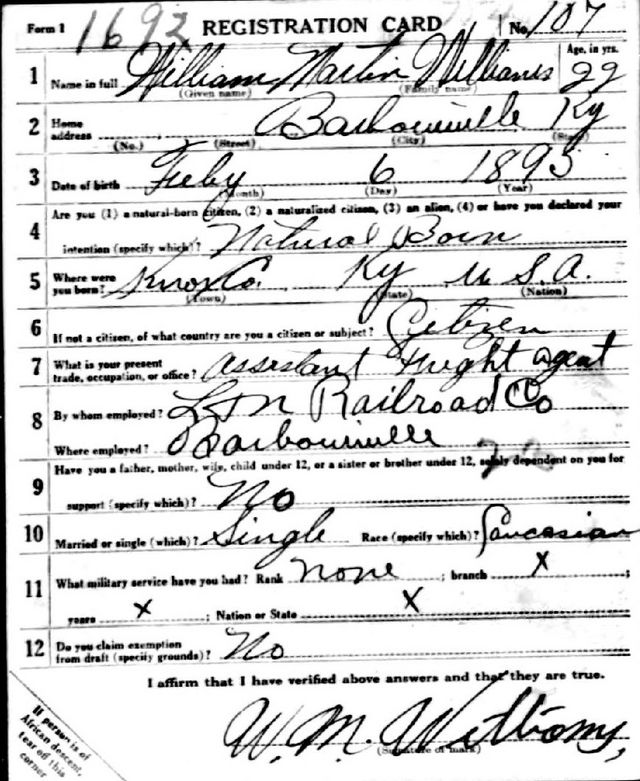 Form 1 1692 REGISTRATION CARD No. 107
1 Name in full William Martin Williams Age, in yrs. 22
(Given name) (Family name)
2 Home address Barbourville Ky
(No.) (Street) (City) (State)
3 Date of birth Feby 6 1895
(Month) (Day) (Year)
4 Are you (1) a natural-born citizen, (2) a naturalized citizen, (3) an alien, (4) or have you declared your
intention (specify which)? Natural Born
5 Where were you born? Knox Co. Ky U.S.A.
(Town) (State) (Nation)
6 If not a citizen, of what country are you a citizen or subject? Citizen
7 What is your present trade, occupation, or office? Assistant Freight agent
8 By whom employed? L & N Railroad Co
Where employed? Barbourville
9 Have you a father, mother, wife, child under 12, or a sister or brother under 12, solely dependent on you for
support (specify which)? No
10 Married or single (which)? Single Race (specify which)? Caucasian
11 What military service have you had? Rank none ; branch X ;
years X ; Nation or State X
12 Do you claim exemption from draft (specify grounds)? No
I affirm that I have verified above answers and that they are true.
W. M. Williams,
(Signature or mark)
If person is of
African descent,
tear off this
corner